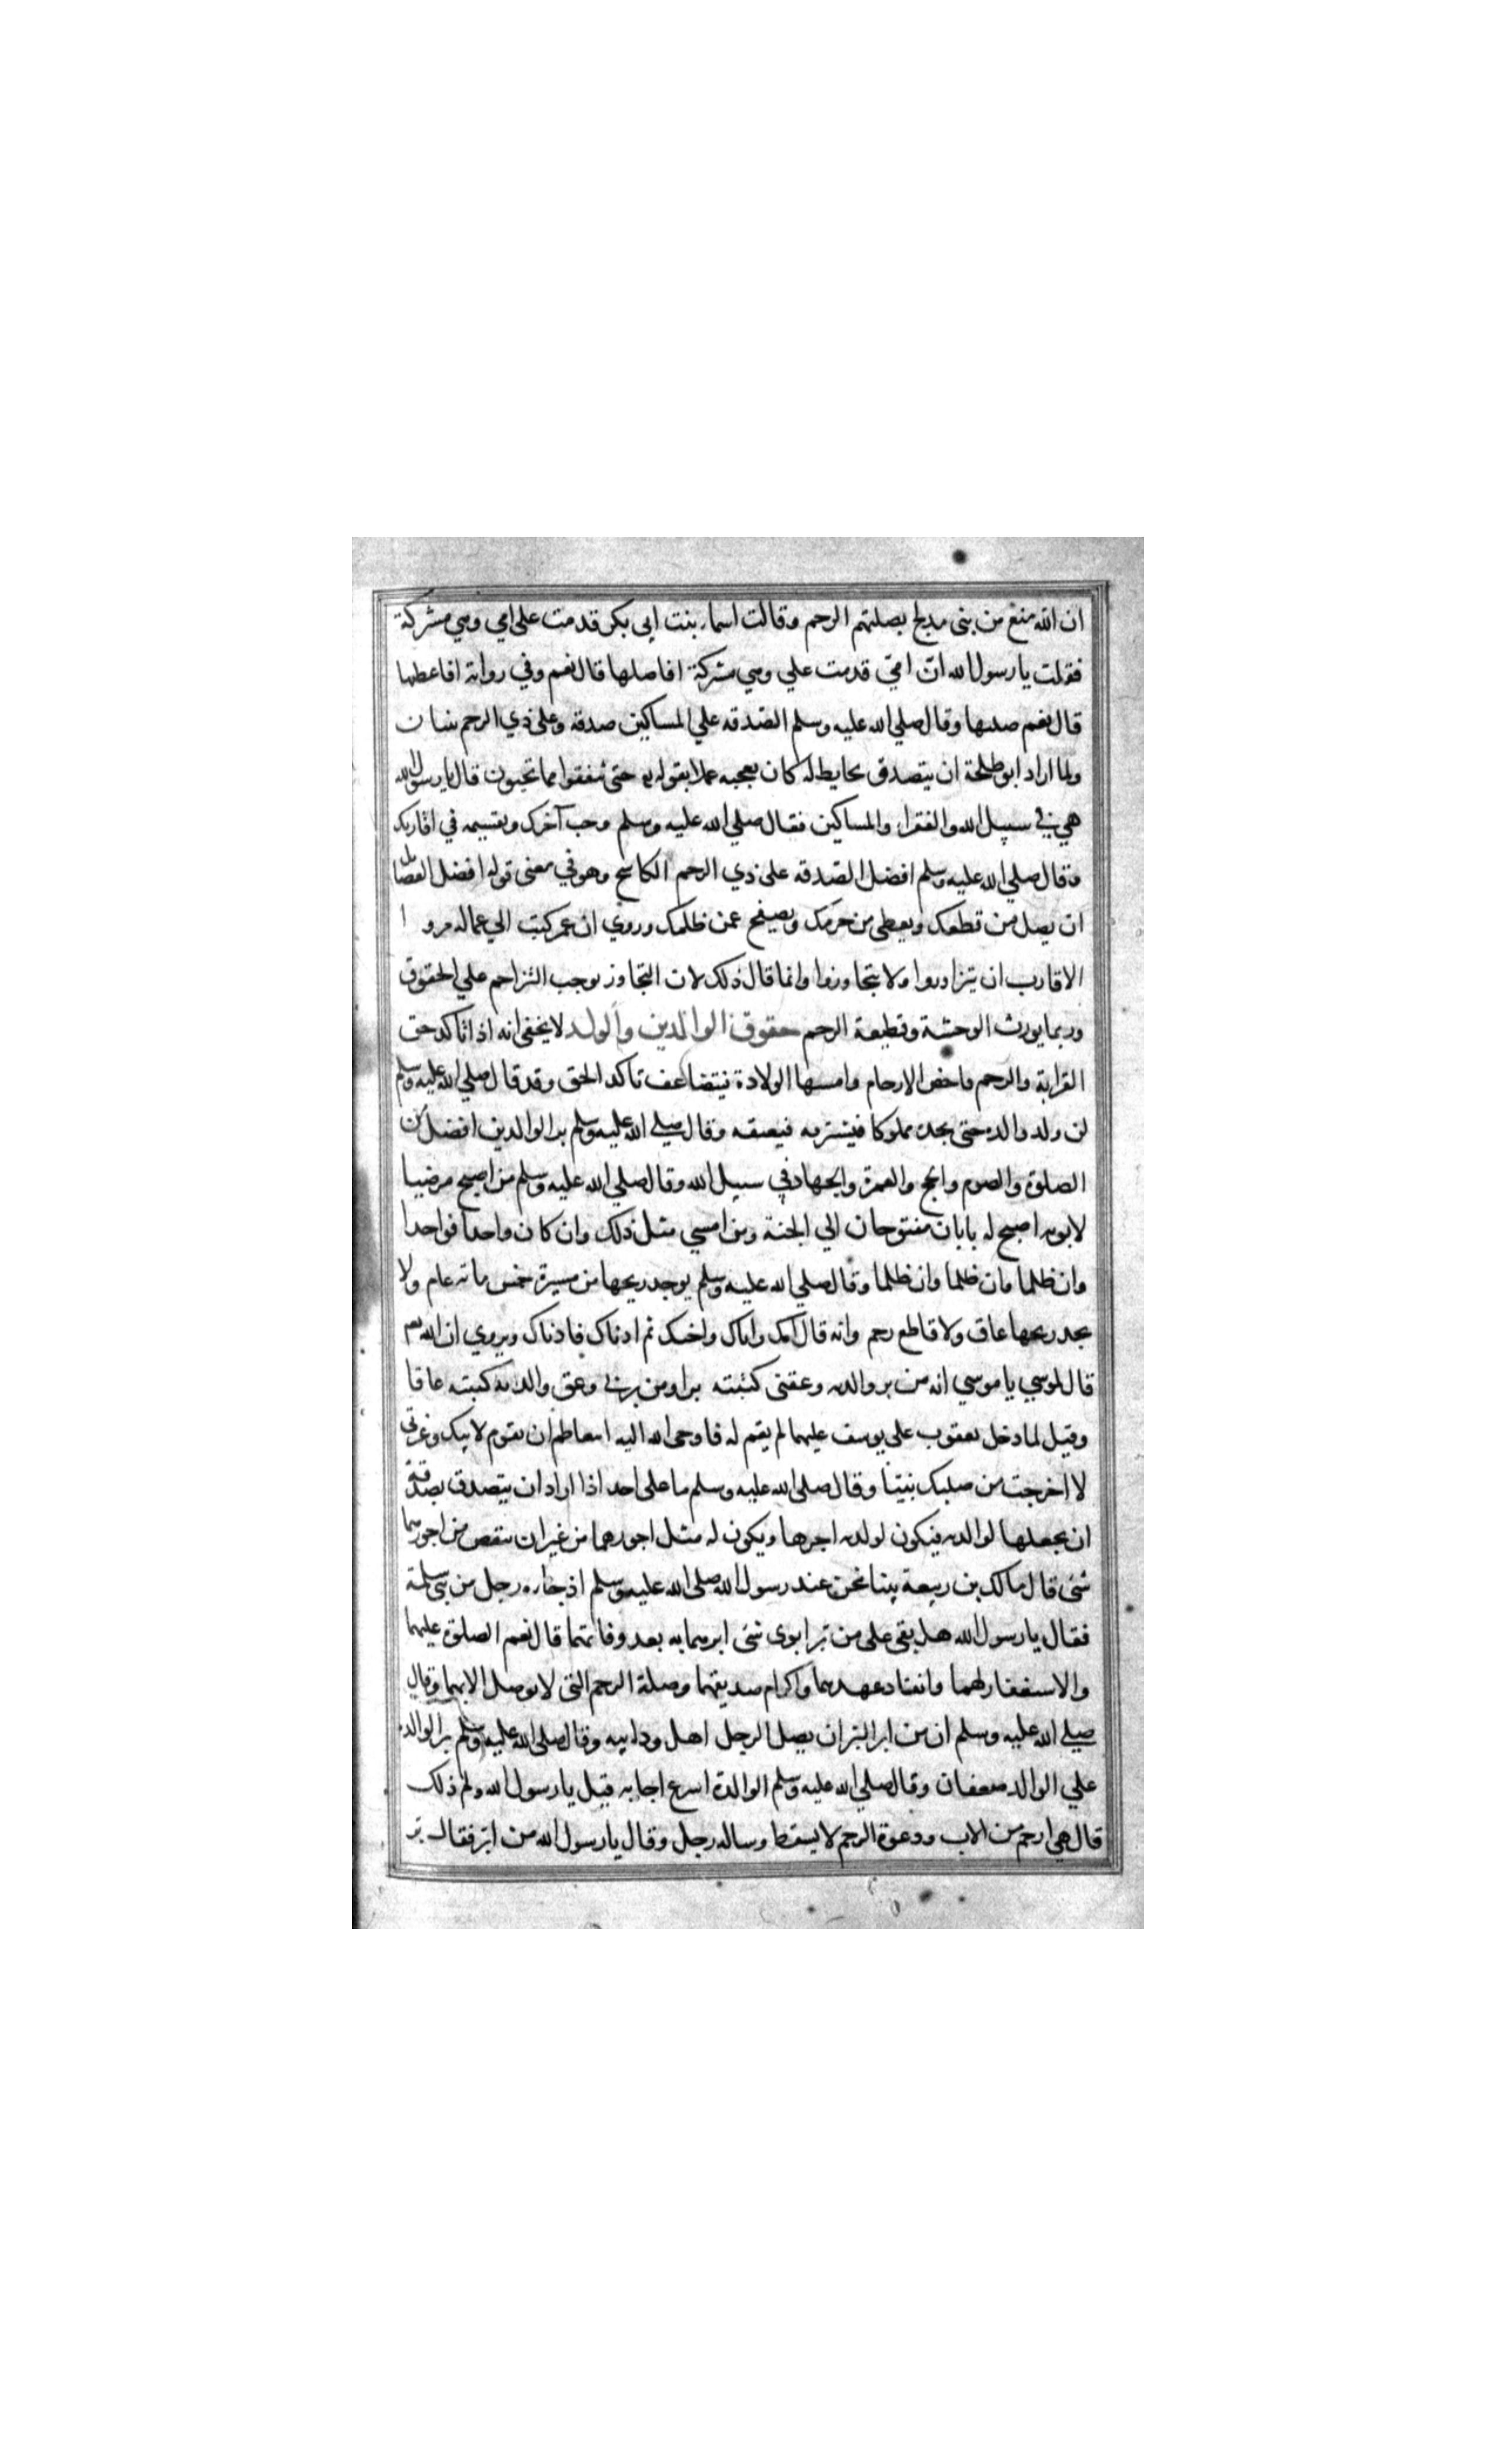 ان الله منع من بنى مدلج بصلتهم الرحم وقالت اسماء بنت ابى بكر قدمت على امي وهي مشركة
فقولت يا رسول الله انّ امّي قدمت علي وهي مشركة افاصلها قال نعم وفي رواية افاعطيها
قال نعم صليها وقال صلي الله عليه وسلم الصّدقه علي المساكين صدقه وعلى ذي الرحم ثنتان
ولما اراد ابو طلحة ان يتصدق بحايط له كان يعجبه عملا بقوله تع حتى تنفقوا مما تحبون قال يا رسول الله
هي في سبيل الله والفقراء والمساكين فقال صلي الله عليه وسلم وجب آجرك وقسيمه في اقاربك
وقال صلي الله عليه وسلم افضل الصّدقه على ذي الرحم الكاشح وهو في معنى قوله افضل الفضايل
ان يصل من قطعك ويعطى من حرمك ويصفح عمن ظلمك وروي ان عمر كتب الي عماله مروا
الاقارب ان يتزاوروا ولا يتجاوروا وانما قال ذلك لان التجاور يوجب التزاحم علي الحقوق
وربما يورث الوحشة وقطيعة الرحم حقوق الوالدين والولد لا يخفى انه اذا تاكد حق
القرابة والرحم فاخص الارحام وامسها الولادة فيتضاعف تاكد الحق وقد قال صلي الله عليه وسلم
لن ولد والده حتى يجده مملوكا فيشتريه فيعتقه وقال صلي الله عليه وسلم بر الوالدين افضل من
الصلوة والصوم والحج والعمرة والجهاد في سبيل الله وقال صلي الله عليه وسلم من اصبح مرضيا
لابويه اصبح له بابان مفتوحان الي الجنة ومن امسي مثل ذلك وان كان واحدا فواحدا
وان ظلما وان ظلما وان ظلما وقال صلي الله عليه وسلم يوجد ريحها من مسيرة خمس ماته عام ولا
يجد ريحها عاق ولا قاطع رحم وانه قال امك واباك واختك ثم ادناك فادناك ويروي ان الله تع
قال لموسي يا موسي انه من بر والديه وعقنى كتبته برا ومن برني وعق والديه كتبته عاقا
وقيل لما دخل يعقوب على يوسف عليهما لم يقم له فاوحى الله اليه اتتعاظم ان تقوم لابيك وعزتي
لا اخرجت من صلبك نبيّا وقال صلى الله عليه وسلم ما على احد اذا اراد ان يتصدق بصدقة
ان يجعلها لوالديه فيكون لولديه اجرها ويكون له مثل اجورهما من غير ان ينقص من اجورهما
شئ قال مالك بن ربيعة بينا نحن عند رسول الله صلى الله عليه وسلم اذ جاءه رجل من بنى سلمة
فقال يا رسول الله هل بقى على من بر ابوى شئ ابرهما به بعد وفاتهما قال نعم الصلوة عليهما
والاستغفار لهما وانفاد عهدهما واكرام صديقهما وصلة الرحم التي لا توصل الا بهما وقال
صلي الله عليه وسلم ان من ابر البر ان يصل الرجل اهل ود ابيه وقال صلى الله عليه وسلم بر الوالدة
علي الوالد ضعفان وقال صلي الله عليه وسلم الوالدة اسرع اجابه قيل يا رسول الله ولم ذلك
قال هي ارحم من الاب ودعوة الرحم لا يسقط وساله رجل وقال يا رسول الله من ابر فقال بر